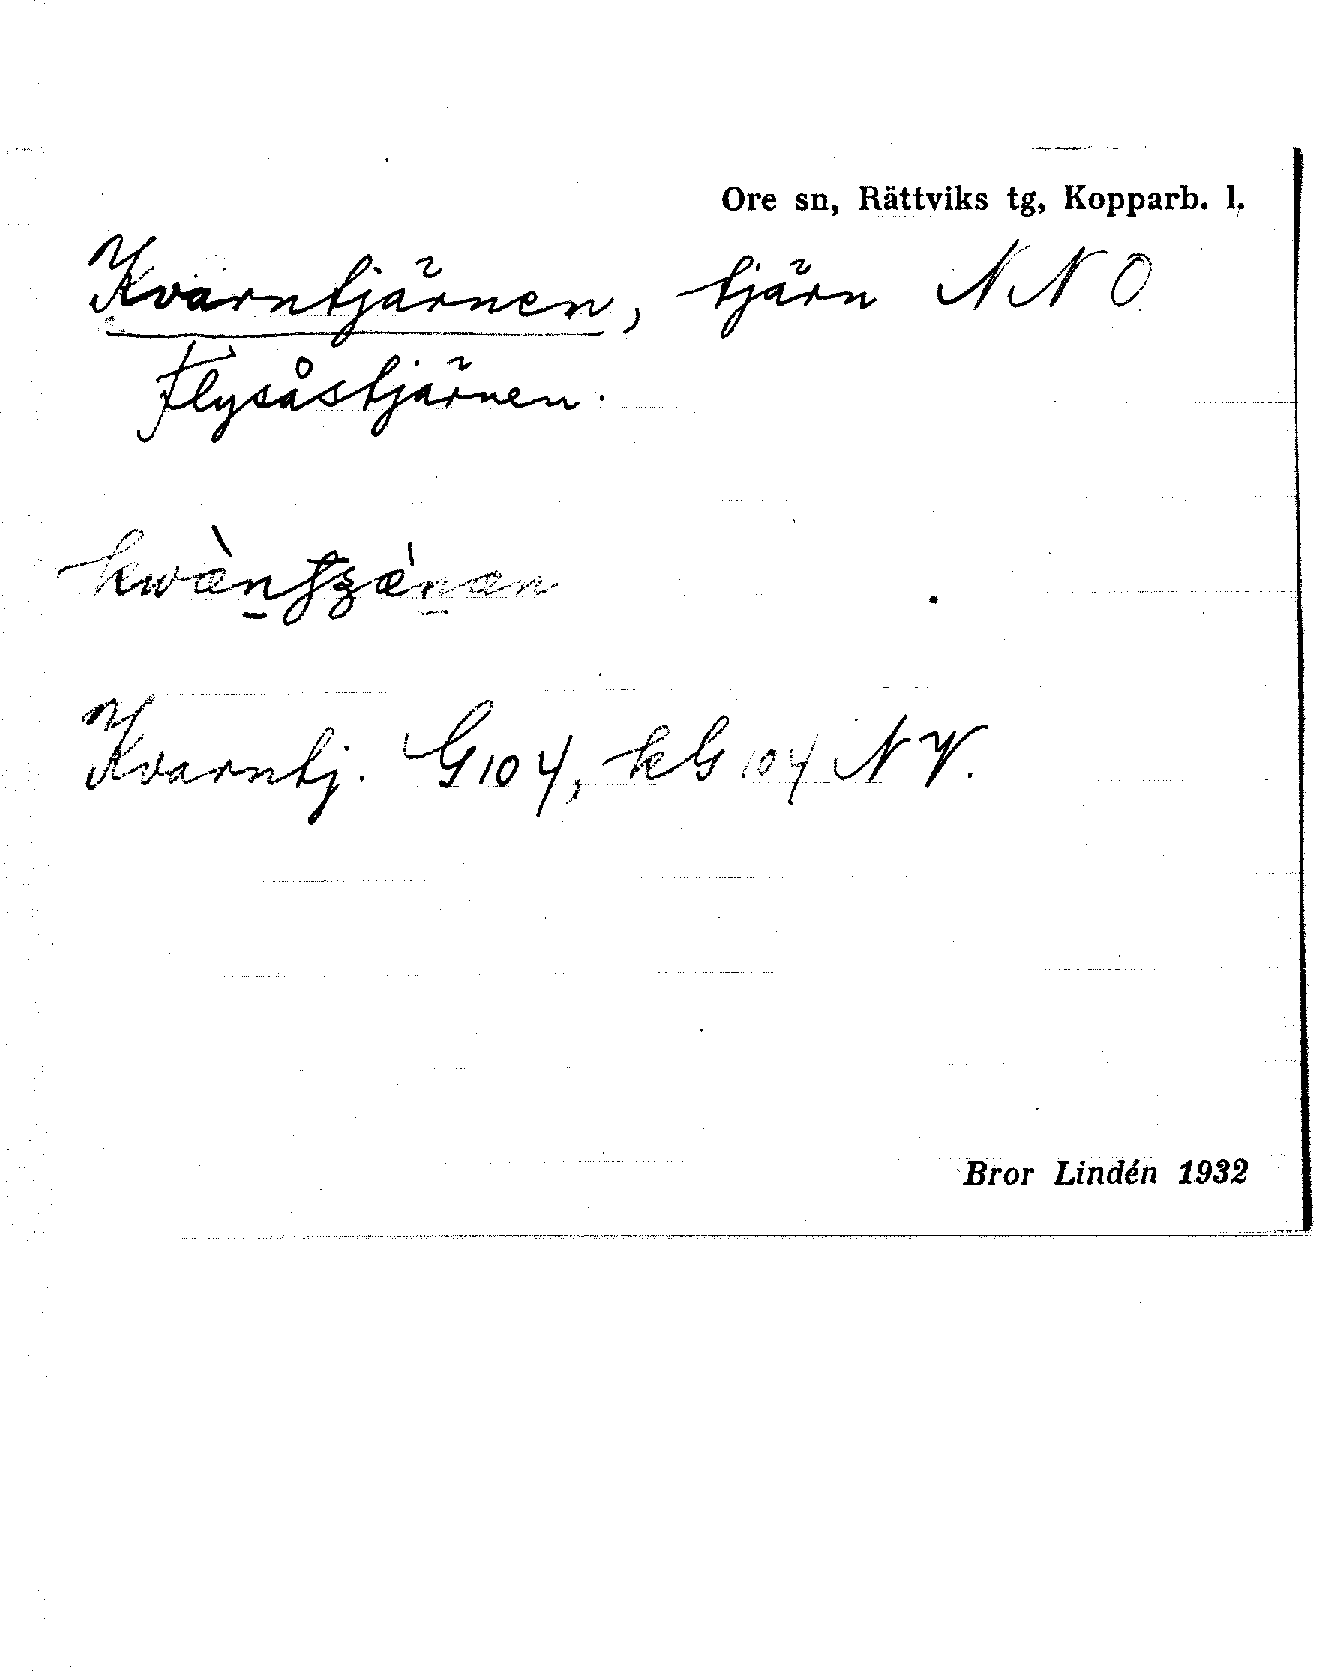 Ore sn, Rättviks tg, Kopparb. l.
Kvarntjärnen, tjärn NNO
Flysåstjärnen.
Kvarntj. G104, kG104 NV.
Bror Lindén 1932